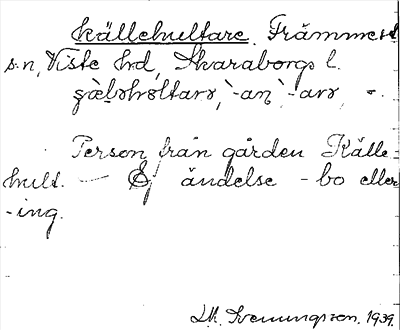 Källehultare. Främmest
s:n, Viste hrd, Skaraborgs l.
-an, -arr, -.
Person från gården Källe-
hult. — Ej ändelse -bo eller
-ing.
LM. Svenungsson. 1939.